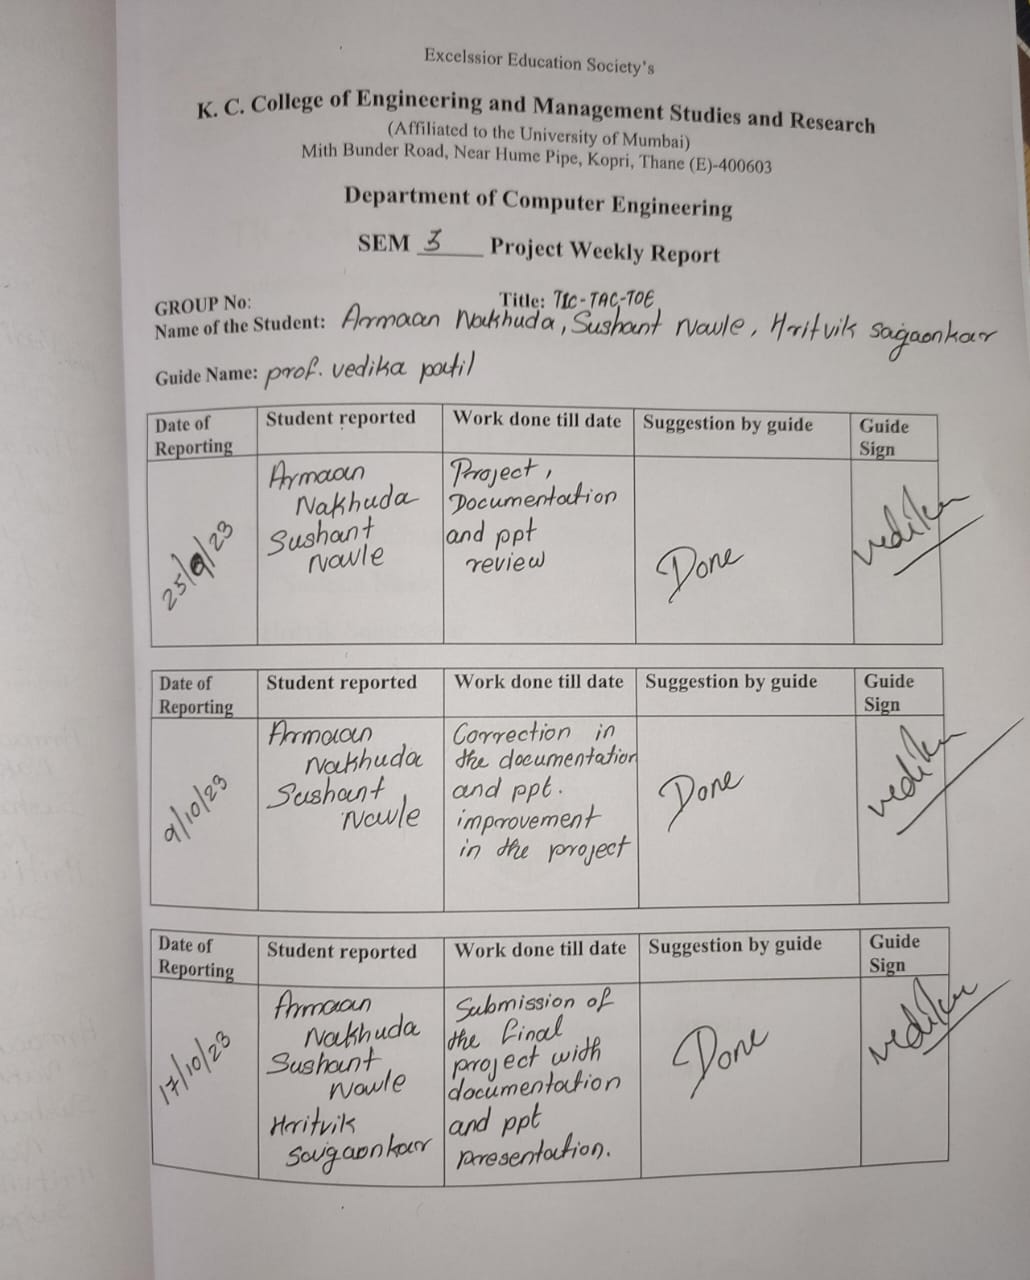 Excelssior Education Society's
K. C. College of Engineering and Management Studies and Research
(Affiliated to the University of Mumbai)
Mith Bunder Road, Near Hume Pipe, Kopri, Thane (E)-400603
Department of Computer Engineering
SEM 3 Project Weekly Report
GROUP No: Title: TIC-TAC-TOE
Name of the Student: Armaan Nakhuda, Sushant Nawle, Hritvik Sagaonkar
Guide Name: prof. vedika patil
Date of Reporting Student reported Work done till date Suggestion by guide Guide Sign
25/9/23
Armaan
Nakhuda
Sushant
Nawle
Project,
Documentation
and ppt
review
Done
vedika
Date of Reporting Student reported Work done till date Suggestion by guide Guide Sign
9/10/23
Armaan
Nakhuda
Sushant
Nawle
Correction in
the documentation
and ppt.
improvement
in the project
Done
vedika
Date of Reporting Student reported Work done till date Suggestion by guide Guide Sign
17/10/23
Armaan
Nakhuda
Sushant
Nawle
Hritvik
Saigaonkar
Submission of
the final
project with
documentation
and ppt
presentation.
Done
vedika